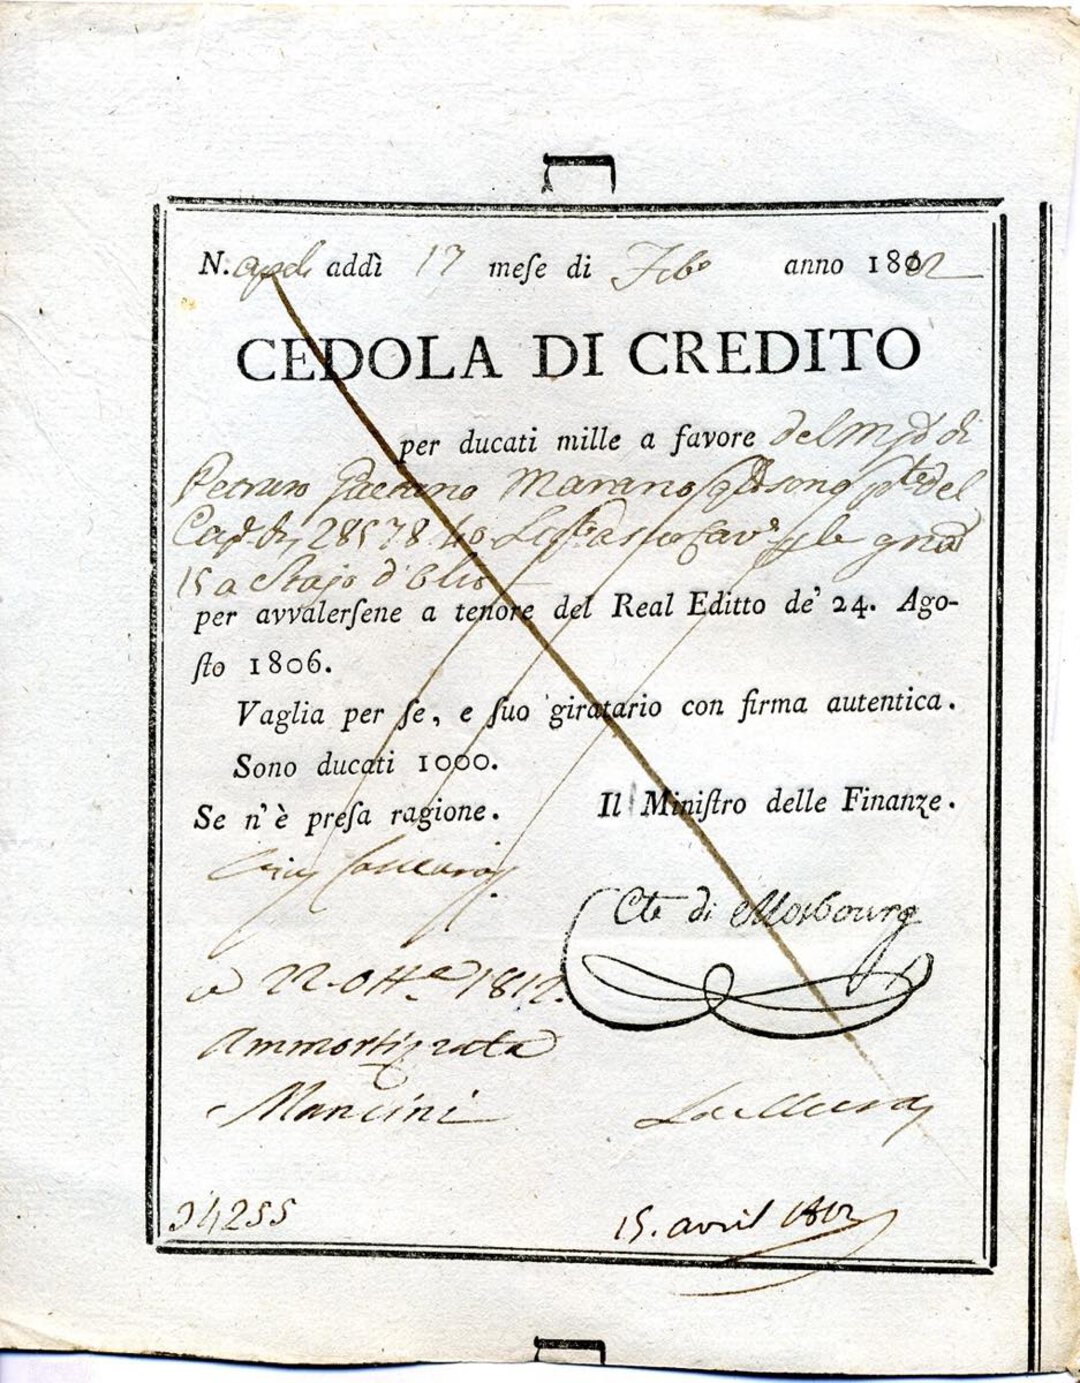 N.apoli addì 17 meſe di Febo anno 1812
CEDOLA DI CREDITO
per ducati mille a favore del di
Gaetano Marano del
28578.40
15 a Stajo d'Olio
per avvalerſene a tenore del Real Editto de' 24. Ago-
ſto 1806.
Vaglia per ſe, e ſuo giratario con firma autentica.
Sono ducati 1000.
Se n'è preſa ragione. Il Miniſtro delle Finanze.
Cte di Mosbourg
a 22. Ott.e 1812.
Ammortizzata
Mancini
34255
15. avril 1812